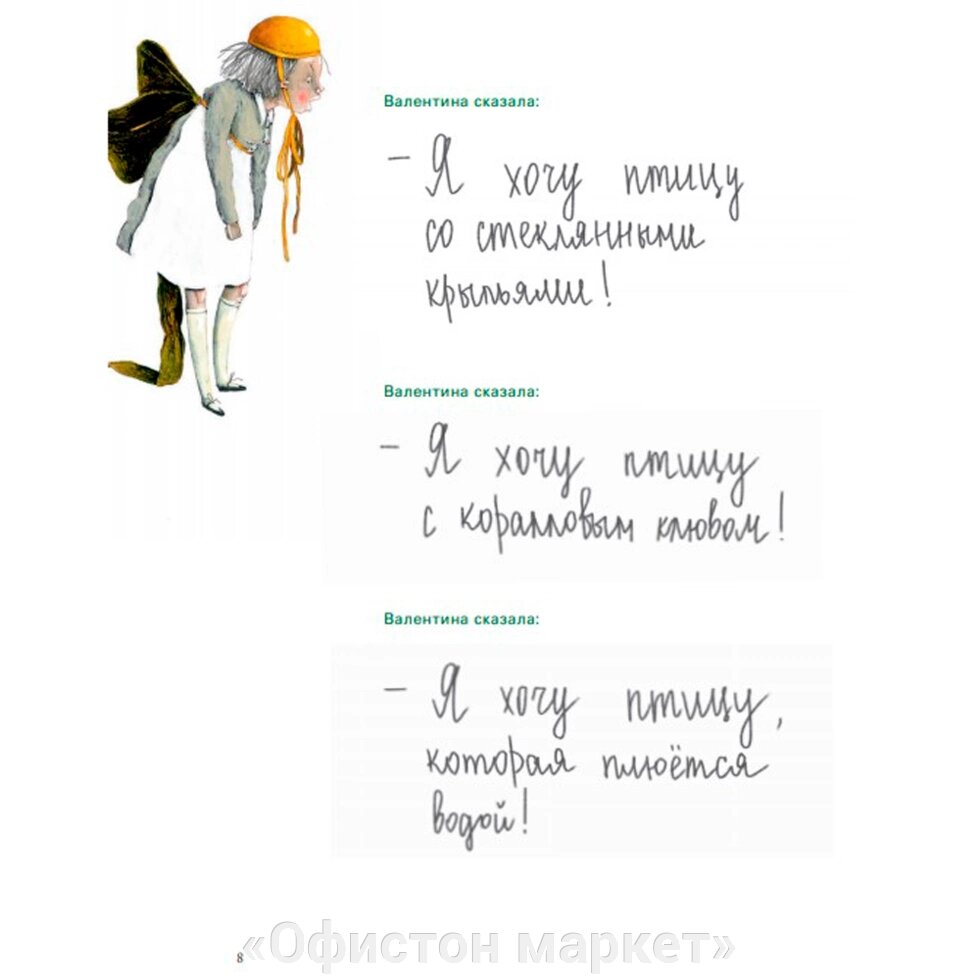 Валентина сказала:
– Я хочу птицу
со стеклянными
крыльями!
Валентина сказала:
– Я хочу птицу
с коралловым клювом!
Валентина сказала:
– Я хочу птицу,
которая плюётся
водой!
8
«Офистон маркет»